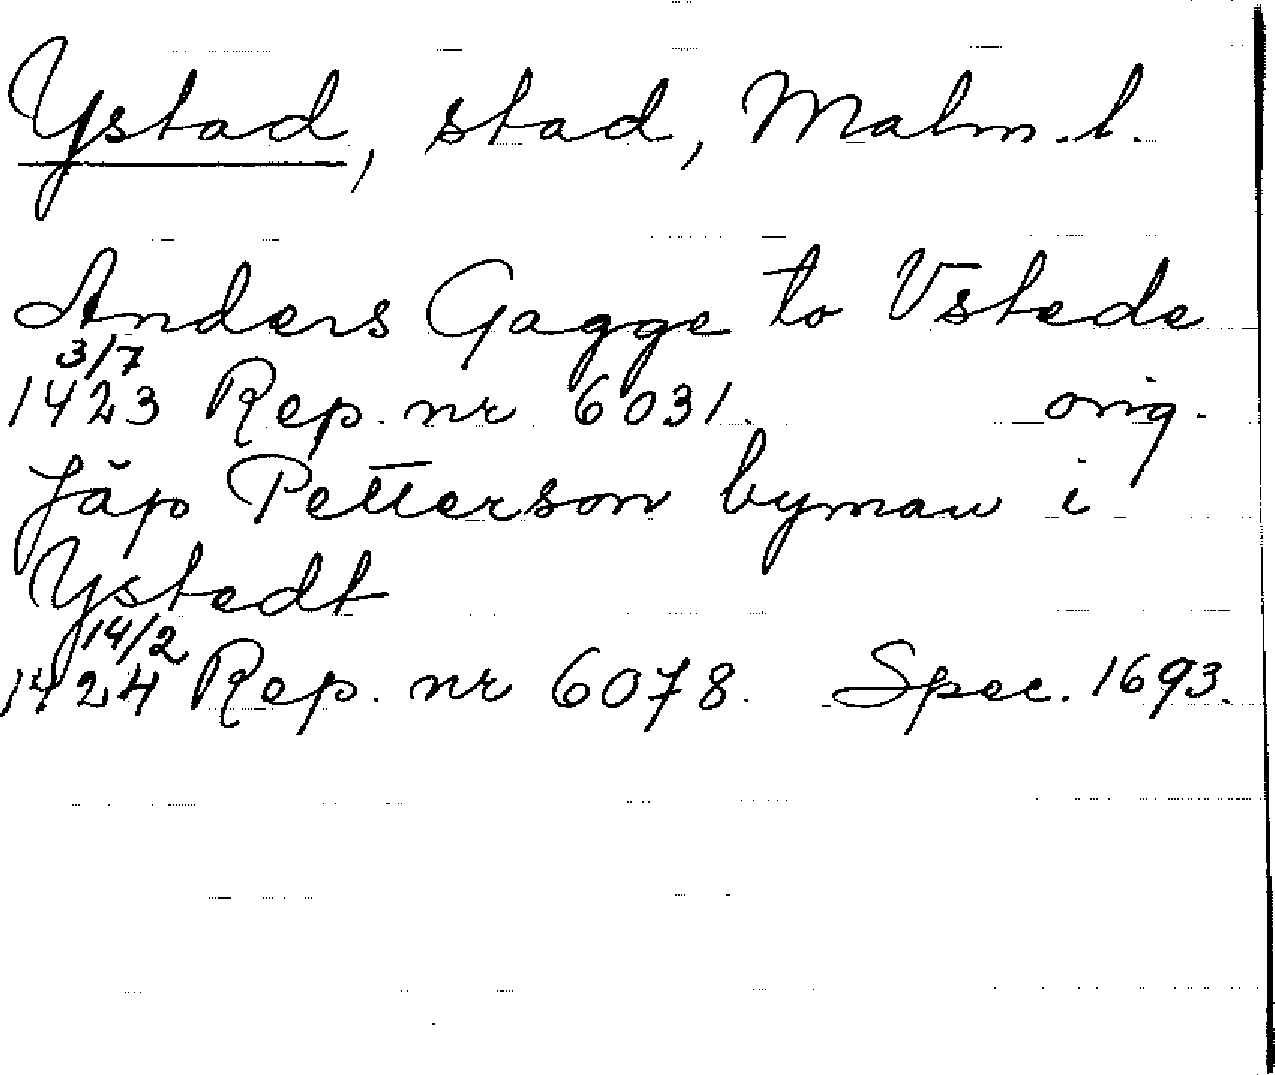 Ystad, stad, Malm. l.
Anders Gagge to Vstede
3/7
1423 Rep. nr 6031. orig.
Jăp Petterson byman i
Ystedt
14/2
1424 Rep. nr 6078. Spec. 1693.